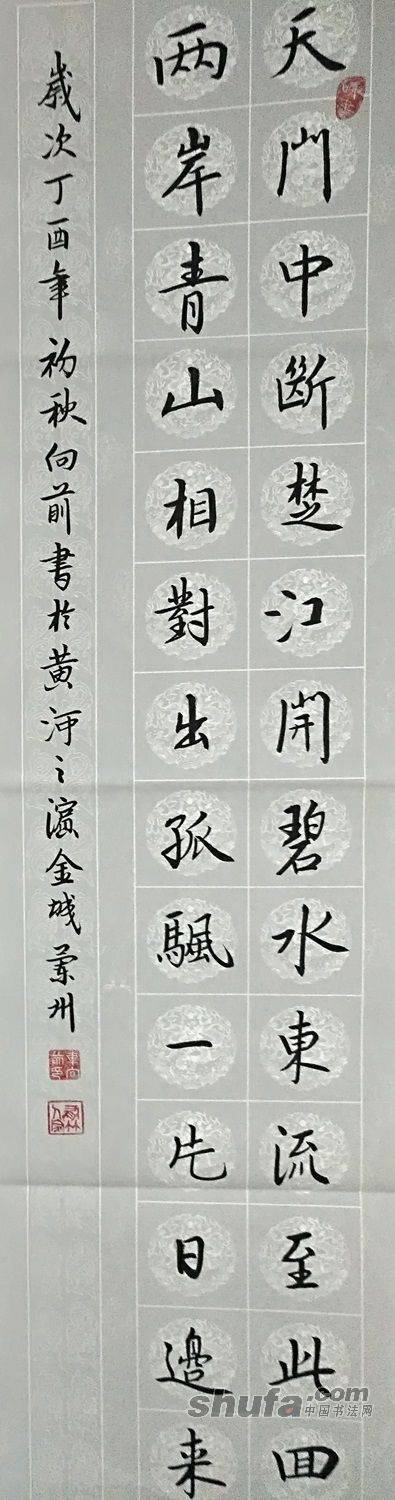 天門中斷楚江開碧水東流至此回
两岸青山相對出孤颿一片日邊来
歲次丁酉年初秋向前書於黄河之濵金城蘭州
shufa.com
中国书法网